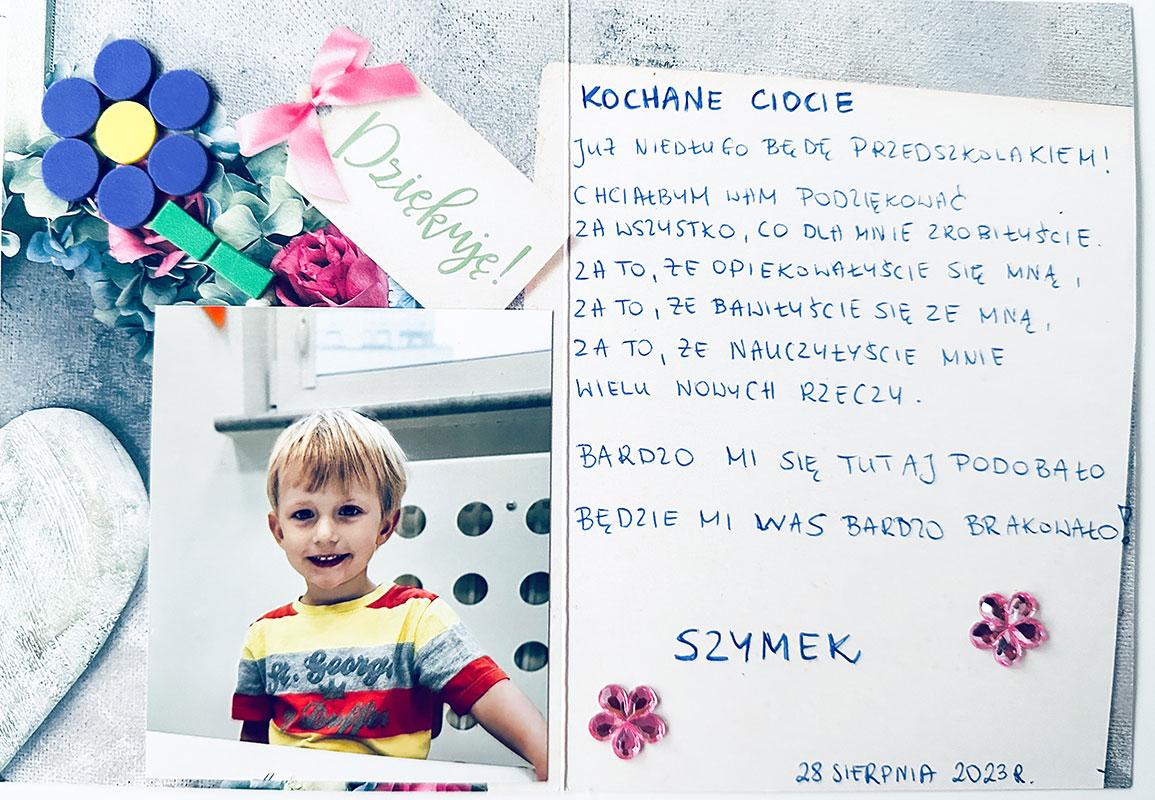 Dziękuję!
KOCHANE CIOCIE
JUŻ NIEDŁUGO BĘDĘ PRZEDSZKOLAKIEM!
CHCIAŁBYM WAM PODZIĘKOWAĆ
ZA WSZYSTKO, CO DLA MNIE ZROBIŁYŚCIE.
ZA TO, ŻE OPIEKOWAŁYŚCIE SIĘ MNĄ,
ZA TO, ŻE BAWIŁYŚCIE SIĘ ZE MNĄ,
ZA TO, ŻE NAUCZYŁYŚCIE MNIE
WIELU NOWYCH RZECZY.
BARDZO MI SIĘ TUTAJ PODOBAŁO
BĘDZIE MI WAS BARDZO BRAKOWAŁO!
SZYMEK
28 SIERPNIA 2023 R.
St. George